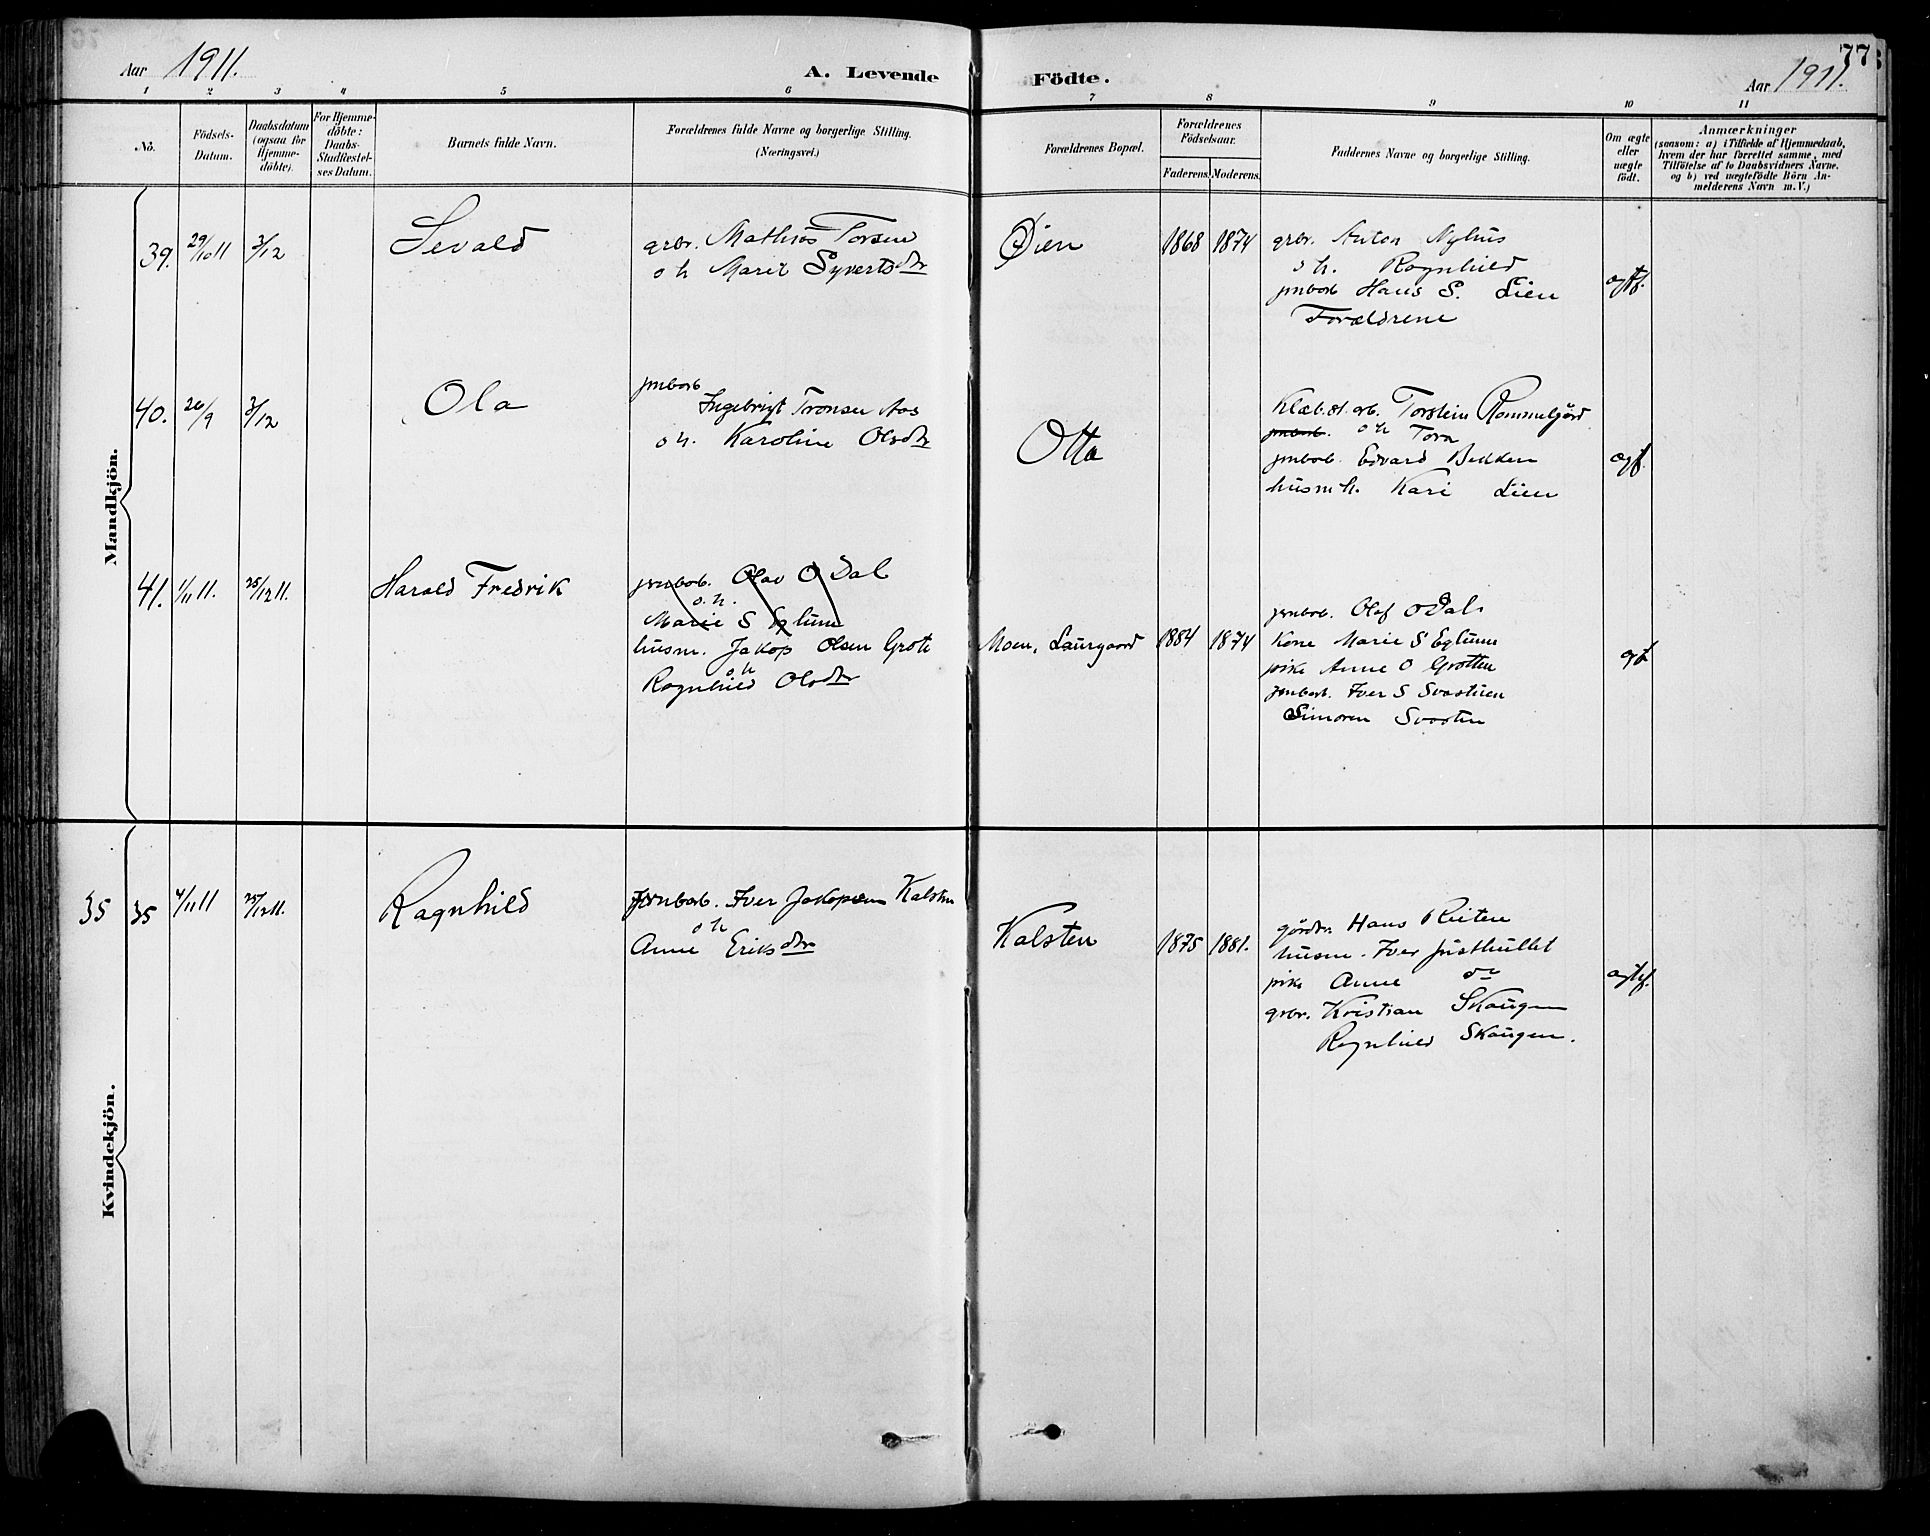 Aar 1911.
A. Levende Födte.
Aar 1911.
77
1 2 3 4 5 6 7 8 9 10 11
No.
Födsels-Datum.
Daabsdatum (ogsaa for Hjemme-döbte).
For Hjemme-döbte: Daabs-Stadfæstel-ses Datum.
Barnets fulde Navn.
Forældrenes fulde Navne og borgerlige Stilling.
(Næringsvei.)
Forældrenes Bopæl.
Forældrenes Födselsaar.
Faderens. Moderens.
Faddernes Navne og borgerlige Stilling.
Om ægte eller uægte födt.
Anmærkninger
(saasom: a) i Tilfælde af Hjemmedaab,
hvem der har forrettet samme, med
Tilföielse af to Daabsvidners Navne.
og b) ved uægtefödte Börn An-
melderens Navn m.V.)
Mandkjön.
39. 29/10 11 3/12 Sevald
grbr. Mathias Torsen
o h Marit Syvertsdtr
Øien 1868 1874
grbr. Anton Nyhus
o h. Ragnhild
jmbarb Hans S. Lien
Forældrene
ægtf.
40. 26/9 3/12 Ola
jmbarb
Ingebrigt Tronsen Aas
o h. Karoline Olsdtr
Otta
Torstein Rommelgjörd
jmbarb. o h Tora
jmbarb. Edvard Bekken
husm h. Kari Lien
ægf.
41. 1/11 11. 25/12 11. Harald Fredrik
jernbarb. Olav O Dal
o. h.
Marie S Eglum
husm. Jakop Olsen Grote
o h
Ragnhild Olsdtr
Moen, Laurgaard 1884 1874
jernbarb. Olaf O Dal
Kone Marie S Eglum
pike Anne O Grotten
jernbarb. Iver S Svastuen
Simoren Svasten
ægt
Kvindekjön.
35 35 4/11 11 25/12 11. Ragnhild
Jernbarb. Iver Jakopsen Kalsten
o h
Anne Eriksdtr
Kalsten 1875 1881.
gördbr. Hans Ruten
husm. Iver Justhullet
pike Anne do
grbr. Kristian Skaugen
Ragnhild Skaugen.
ægtf.